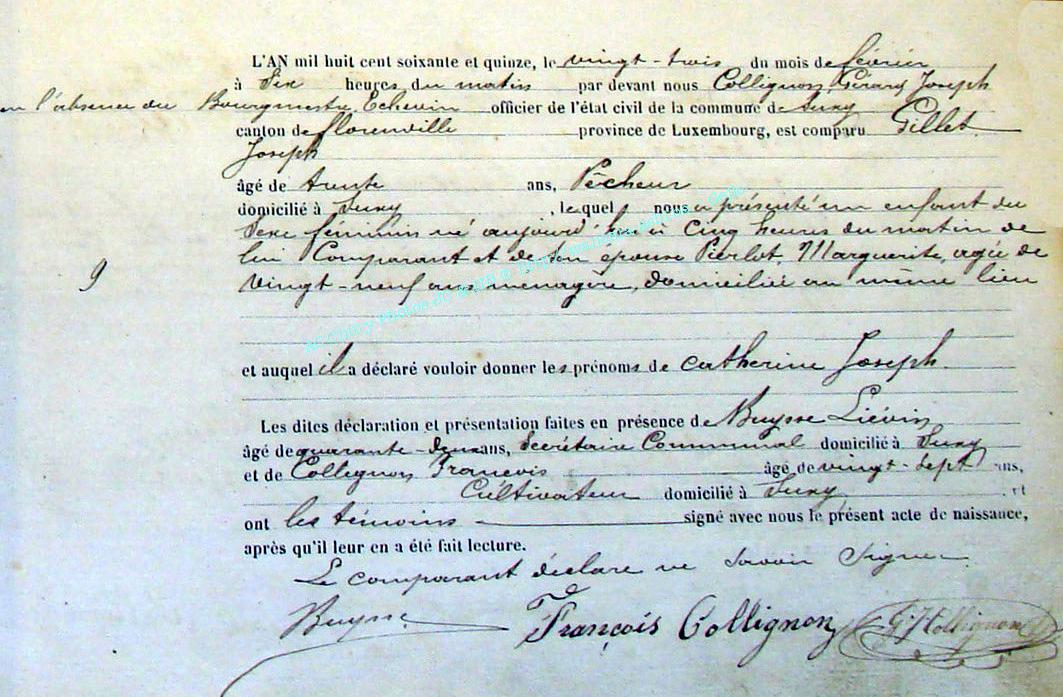 L'AN mil huit cent soixante et quinze, le vingt-trois du mois de février
à dix heures du matin par devant nous Collignon Gérard Joseph
en l'absence du Bourgmestre, Echevin officier de l'état civil de la commune de Suxy
canton de florenville province de Luxembourg, est comparu Gillet
Joseph
âgé de trente ans, Pêcheur
domicilié à Suxy, lequel nous a présenté un enfant du
Sexe féminin né aujourd'hui à Cinq heures du matin de
lui Comparant et de son épouse Pierlot, Marguerite, agée de
9 vingt-neuf ans menagère, domiciliée au même lieu
et auquel il a déclaré vouloir donner les prénoms de catherine Joseph.
Les dites déclaration et présentation faites en présence de Buysse Liévin
âgé de quarante-deux ans, Secrétaire Communal domicilié à Suxy
et de Collignon François âgé de vingt-sept ans,
Cultivateur domicilié à Suxy. et
ont les témoins signé avec nous le présent acte de naissance,
après qu'il leur en a été fait lecture.
Le comparant déclare ne savoir Signer
Buysse François Collignon G. J. Collignon